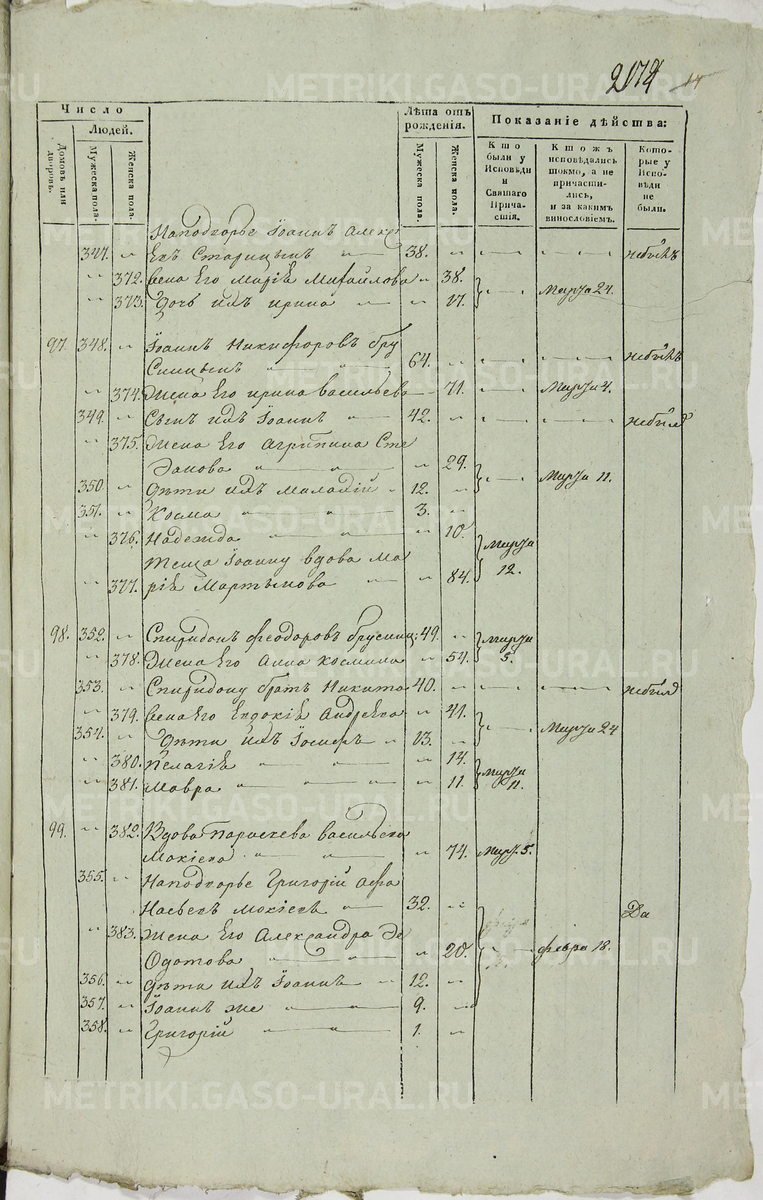 METRIKI.GASO-URAL.RU
Число
Людей.
Домовъ или дворовъ.
Мужеска пола.
Женска пола.
Лѣта отъ рожденія.
Мужеска пола.
Женска пола.
Показаніе дѣйства:
Кто были у Исповѣди и Святаго Причастія.
Ктожъ исповѣдались токмо, а не причастились, и за какимъ винословіемъ.
Которые у Исповѣди не были.
Наподворье Іоаннъ Алекс
347. евъ Старицынъ 38. небылъ
372. Жена Его Марія Михайлова 38.
373. Дочь ихъ Ирина 17. Марта 24.
97. 348. Іоаннъ Никифоровъ Бру
сницынъ 64. небылъ
374. Жена Его Ирина Васильева 71. Марта 4.
349. Сынъ ихъ Іоаннъ 42. небылъ
375. Жена Его Агрипина Сте
фанова 29.
350. Дѣти ихъ 12. Марта 11.
351. Косма 3.
376. Надежда 10. Марта
Теща Іоанну вдова Ма
377. рія Мартемова 84. 12.
98. 352. Спиридонъ Феодоровъ Брусниц: 49. Марта
378. Жена Его Анна Космина 54. 5.
353. Спиридону братъ Никита 40. небылъ
379. Жена Его Евдокія Андреева 41.
354. Дѣти ихъ Іосифъ 13. Марта 24
380. Пелагія 14. Марта
381. Мавра 11. 11.
99. 382. Вдова Параскева Васильева
Мокіева 74. Март. 5.
355. Наподворье Григорій Афа
насьевъ Мокіевъ 32. Да
383. Жена Его Александра Фе
дотова 20. Февра 18.
356. Дѣти ихъ Іоаннъ 12.
357. Іоаннъ же 9.
358. Григорій 1.